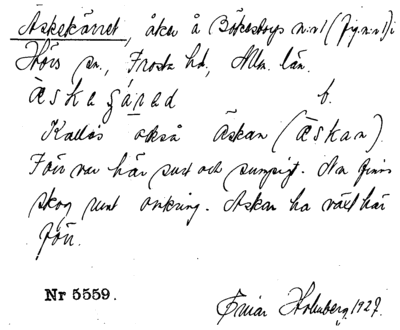 Äskekärret, åker å Bökestorps nr 1 (fig. nr 1) i
Hörs sn., Frosta hd., Mlm. län.
Äskegäred b.
Kallas också Äskan (Äskan).
Förr var här surt och sumpigt. Nu finns
skog runt omkring. Askar ha växt här
förr.
Nr 5559.
Holmberg 1927.